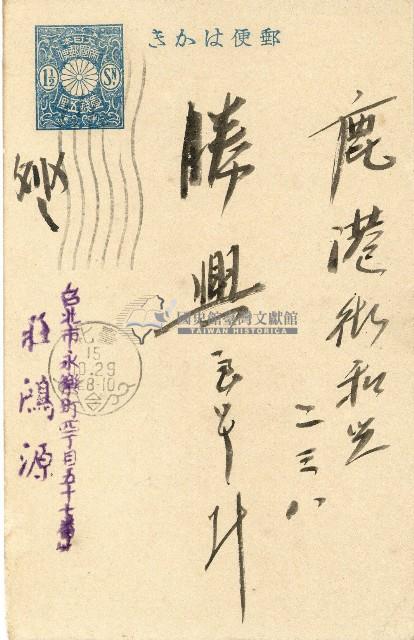 郵便はかき
日本
帝國郵便
1½ SN
壹錢五厘
鹿港街和興
二三八
勝興
台北市永樂町四丁目五十七番
莊鴻源
15
10.29
8-10
國史館臺灣文獻館
TAIWAN HISTORICA